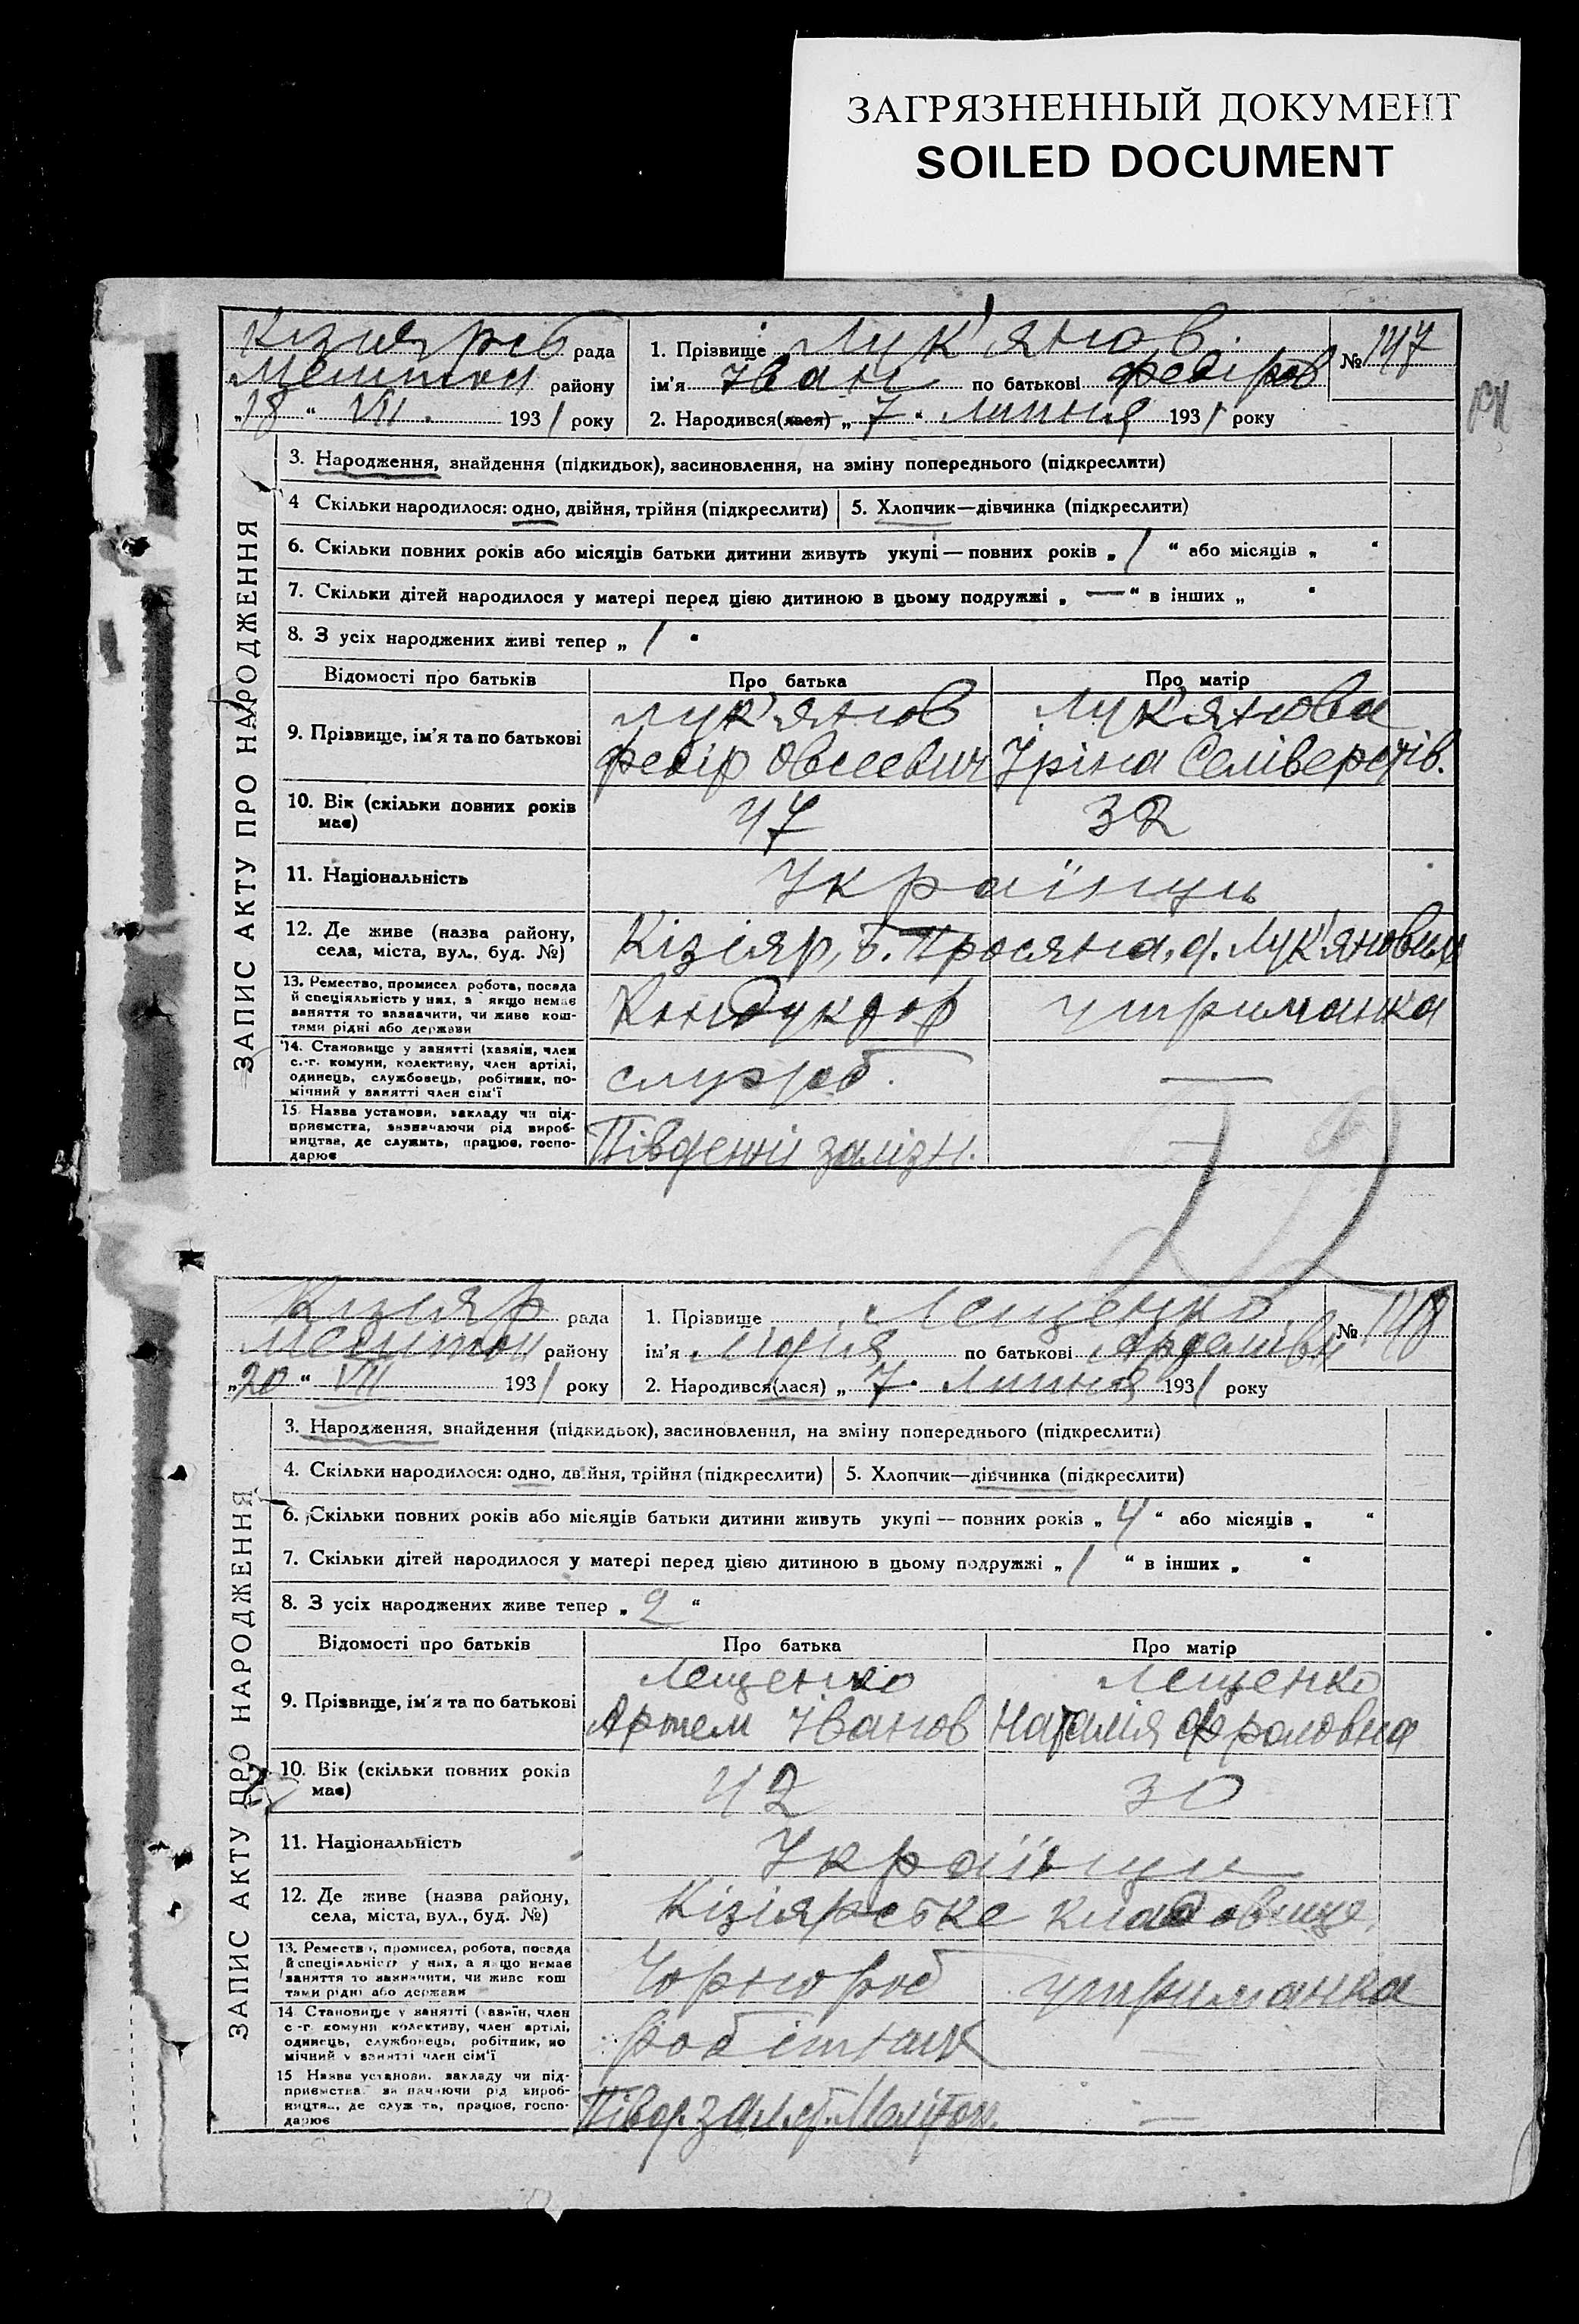 ЗАГРЯЗНЕННЫЙ ДОКУМЕНТ
SOILED DOCUMENT
ЗАПИС АКТУ ПРО НАРОДЖЕННЯ
Кізіярсь рада
Мелітоп району
„18“ VII. 1931 року
1. Прізвище Лук'янов.
ім'я Іван по батькові Федіров
№ 147
2. Народився(лася) „7“ Липня 1931 року
3. Народження, знайдення (підкидьок), засиновлення, на зміну попереднього (підкреслити)
4 Скільки народилося: одно, двійня, трійня (підкреслити) 5. Хлопчик—дівчинка (підкреслити)
6. Скільки повних років або місяців батьки дитини живуть укупі — повних років „1“ або місяців „ “
7. Скільки дітей народилося у матері перед цією дитиною в цьому подружжі „—“ в інших „ “
8. З усіх народжених живі тепер „1“
Відомості про батьків Про батька Про матір
9. Прізвище, ім'я та по батькові
Лук'янов
Федір Овсеевич
Лук'янова
Іріна Селіверстів.
10. Вік (скільки повних років має) 47 32
11. Національність Українці
12. Де живе (назва району, села, міста, вул., буд. №) Кізіяр, б. Просяна, д. Лук'янових
13. Ремество, промисел робота, посада й спеціяльність у них, а якщо немає заняття то зазначити, чи живе коштами рідні або держави
Кондуктор утриманка
14. Становище у занятті (хазяїн, член с.-г. комуни, колективу, член артілі, одинець, службовець, робітник, помічний у занятті член сім'ї
служб. —
15. Назва установи, закладу чи підприємства, зазначаючи рід виробництва, де служить, працює, господарює
Південні залізн. —
ЗАПИС АКТУ ПРО НАРОДЖЕННЯ
Кізіяр рада
Мелітоп району
„20“ VII 1931 року
1. Прізвище Лещенко
ім'я Лідія по батькові Артемівн
№ 148
2. Народився(лася) „7“ Липня 1931 року
3. Народження, знайдення (підкидьок), засиновлення, на зміну попереднього (підкреслити)
4. Скільки народилося: одно, двійня, трійня (підкреслити) 5. Хлопчик—дівчинка (підкреслити)
6. Скільки повних років або місяців батьки дитини живуть укупі — повних років „4“ або місяців „ “
7. Скільки дітей народилося у матері перед цією дитиною в цьому подружжі „1“ в інших „ “
8. З усіх народжених живе тепер „2“
Відомості про батьків Про батька Про матір
9. Прізвище, ім'я та по батькові
Лещенко
Артем Іванов
Лещенко
Наталія Фроловна
10. Вік (скільки повних років має) 42 30
11. Національність Українці
12. Де живе (назва району, села, міста, вул., буд. №) Кізіярське кладовище,
13. Ремество, промисел, робота, посада й спеціяльність у них, а якщо немає заняття то зазначити, чи живе коштами рідні або держави
Чорнороб утриманка
14 Становище у занятті (хазяїн, член с-г. комуни колективу, член артілі, одинець, службовець, робітник, помічний у занятті член сім'ї
робітник —
15 Назва установи, закладу чи підприємства зазначаючи рід виробництва, де служить, працює, господарює
Півд. зал. ст. Меліtоп. —